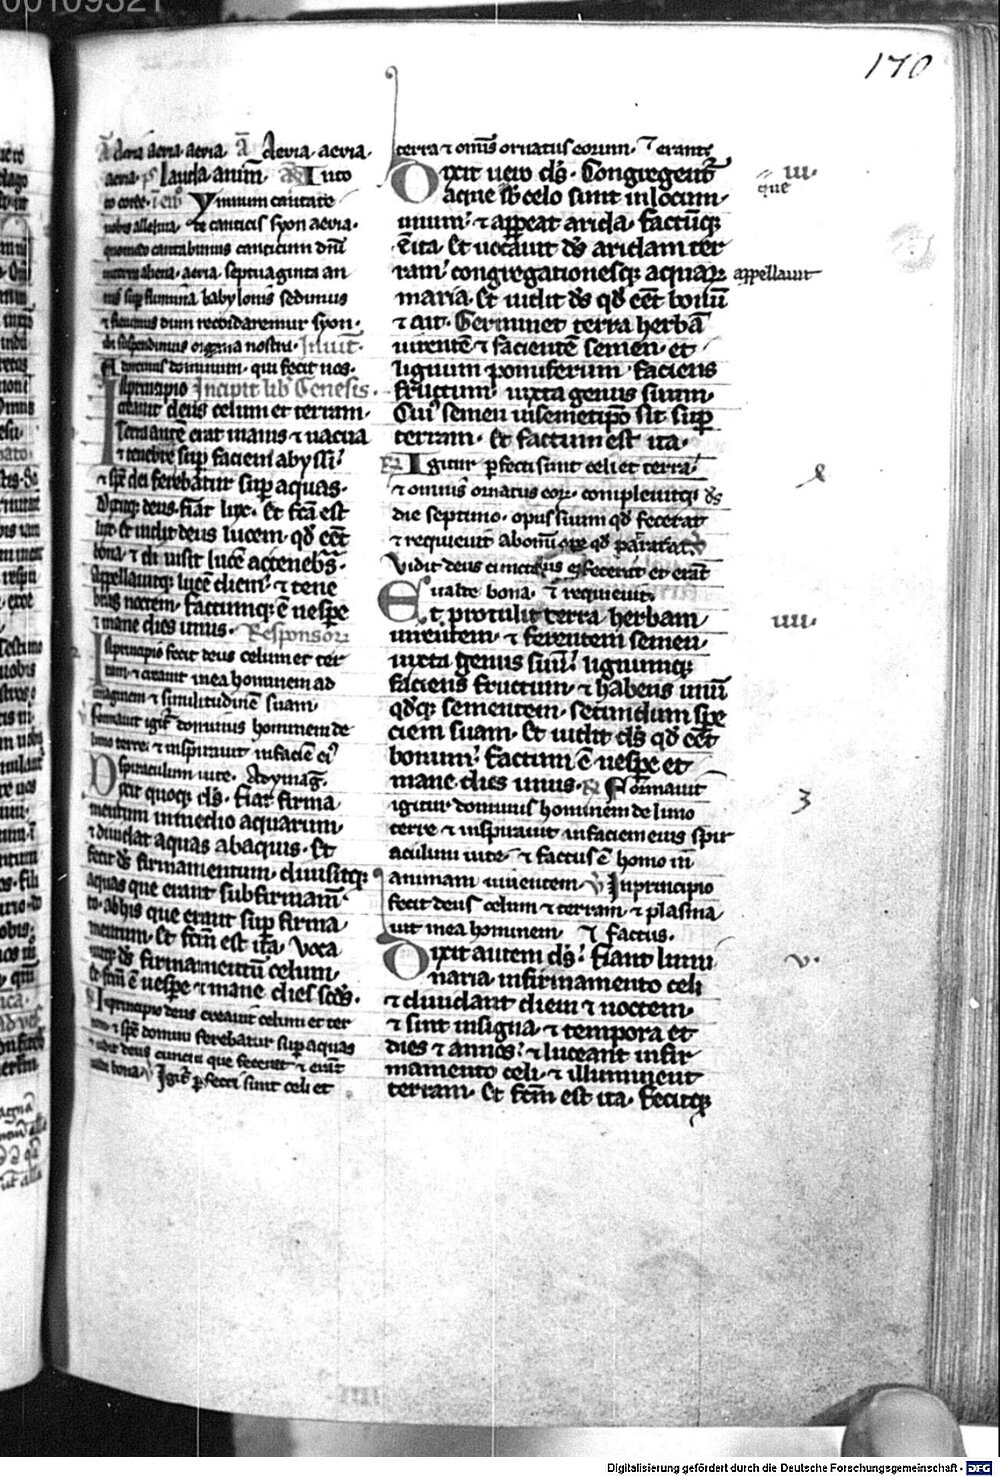 170
Aevia aevia aevia. A Aevia aevia.
aevia. ps Lauda anim̄. In uo
to corde. Ymnum cantate
nobis alleluia. de canticis syon aevia.
quomodo cantabimus canticum dn̄i
in terra aliena. aevia. septuaginta an
nis sup flumina babylonis sedimus
⁊ fleuimus dum recordaremur syon.
ibi suspendimus organa nostra. Inuit̄.
Adoremus dominum. qui fecit nos.
In principio Incipit lib̄ Genesis.
creauit deus celum et terram.
Terra autē erat inanis ⁊ uacua
⁊ tenebre sup faciem abyssi.
⁊ sp̄c dei ferebatur sup aquas.
Dixitq; deus. fiat lux. Et fc̄a est
lux. Et uidit deus lucem. qd̄ eēt
bona. ⁊ diuisit lucē a tenebris.
Appellauitq; lucē diem. ⁊ tene
bras noctem. factumq; ē uespe
⁊ mane dies unus. Responsor
In principio fecit deus celum et ter
ram. ⁊ creauit in ea hominem ad
imaginem ⁊ similitudinē suam.
formauit igit̄ dominus hominem de
limo terre. ⁊ inspirauit in faciē ei
spiraculum uite. Ad ymaḡ.
Dixit quoq; ds̄. fiat firma
mentum in medio aquarum.
⁊ diuidat aquas ab aquis. Et
fecit ds̄ firmamentum. diuisitq;
aquas que erant sub firmam̄
to. ab his que erant sup firma
mentum. Et fc̄m est ita. Voca
uitq; ds̄ firmamentū celum.
Et fc̄m ē uespe ⁊ mane dies sc̄ds.
In principio deus creauit celum et ter
ram ⁊ sp̄c domini ferebatur sup aquas
⁊ uidit deus cuncta que fecerat ⁊ erāt
ualde bona. Igit̄ pfecti sunt celi et
terra ⁊ om̄is ornatus eorum. ⁊ erant
Dixit uero ds̄. Congregent̄
aque sb̄ celo sunt in locum
que
iii.
unum. ⁊ appareat arida. factūq;
ē ita. Et uocauit ds̄ aridam ter
ram. congregationesq; aquar
appellauit
maria. Et uidit ds̄ qd̄ eēt bonū
⁊ ait. Germinet terra herbā
uirentē ⁊ facientē semen. et
lignum pomiferum faciens
fructum. iuxta genus suum.
Cui semen in semetipo sit sup
terram. Et factum est ita.
Igitur pfecti sunt celi et terra
⁊ omnis ornatus eor. compleuitq; ds̄
die septimo. opus suum qd̄ fecerat
⁊ requieuit ab om̄i ope qd̄ patrarat.
Vidit deus cuncta que fecerat et erāt
ualde bona. ⁊ requieuit.
Et protulit terra herbam
iiii.
uirentem. ⁊ ferentem semen
iuxta genus suū. lignumq;
faciens fructum. ⁊ habens unū
qdq; sementem. secundum spe
ciem suam. Et uidit ds̄ qd̄ eēt
bonum. factum ē uespe et
mane dies unus. Formauit
3
igitur dominus hominem de limo
terre ⁊ inspirauit in faciem eius spir
aculum uite. ⁊ factus ē homo in
animam uiuentem. In principio
fecit deus celum ⁊ terram. ⁊ plasma
uit in ea hominem. ⁊ factus.
Dixit autem ds̄. fiant lumi
v.
naria in firmamento celi
⁊ diuidant diem ⁊ noctem.
⁊ sint in signa ⁊ tempora et
dies ⁊ annos. ⁊ luceant in fir
mamento celi. ⁊ illuminent
terram. Et fc̄m est ita. fecitq;
Digitalisierung gefördert durch die Deutsche Forschungsgemeinschaft - DFG